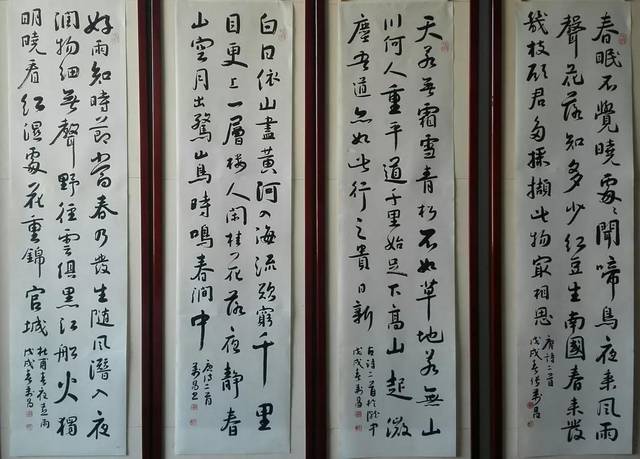 春眠不覺曉處〻聞啼鳥夜来風雨
聲花落知多少紅豆生南國春来發
幾枝願君多採擷此物最相思
唐詩二首
戊戌春
天若無霜雪青松不如草地若無山
川何人重平道千里始足下高山起微
塵吾道亦如此行之貴日新
古詩二首於隴中
戊戌春萬昌
白日依山盡黃河入海流欲窮千里
目更上一層樓人閑桂花落夜靜春
山空月出驚山鳥時鳴春澗中
唐詩二首
萬昌書
好雨知時節當春乃發生随風潛入夜
潤物細無聲野徑雲俱黑江船火獨
明曉看紅濕處花重錦官城
杜甫春夜喜雨
戊戌春萬昌